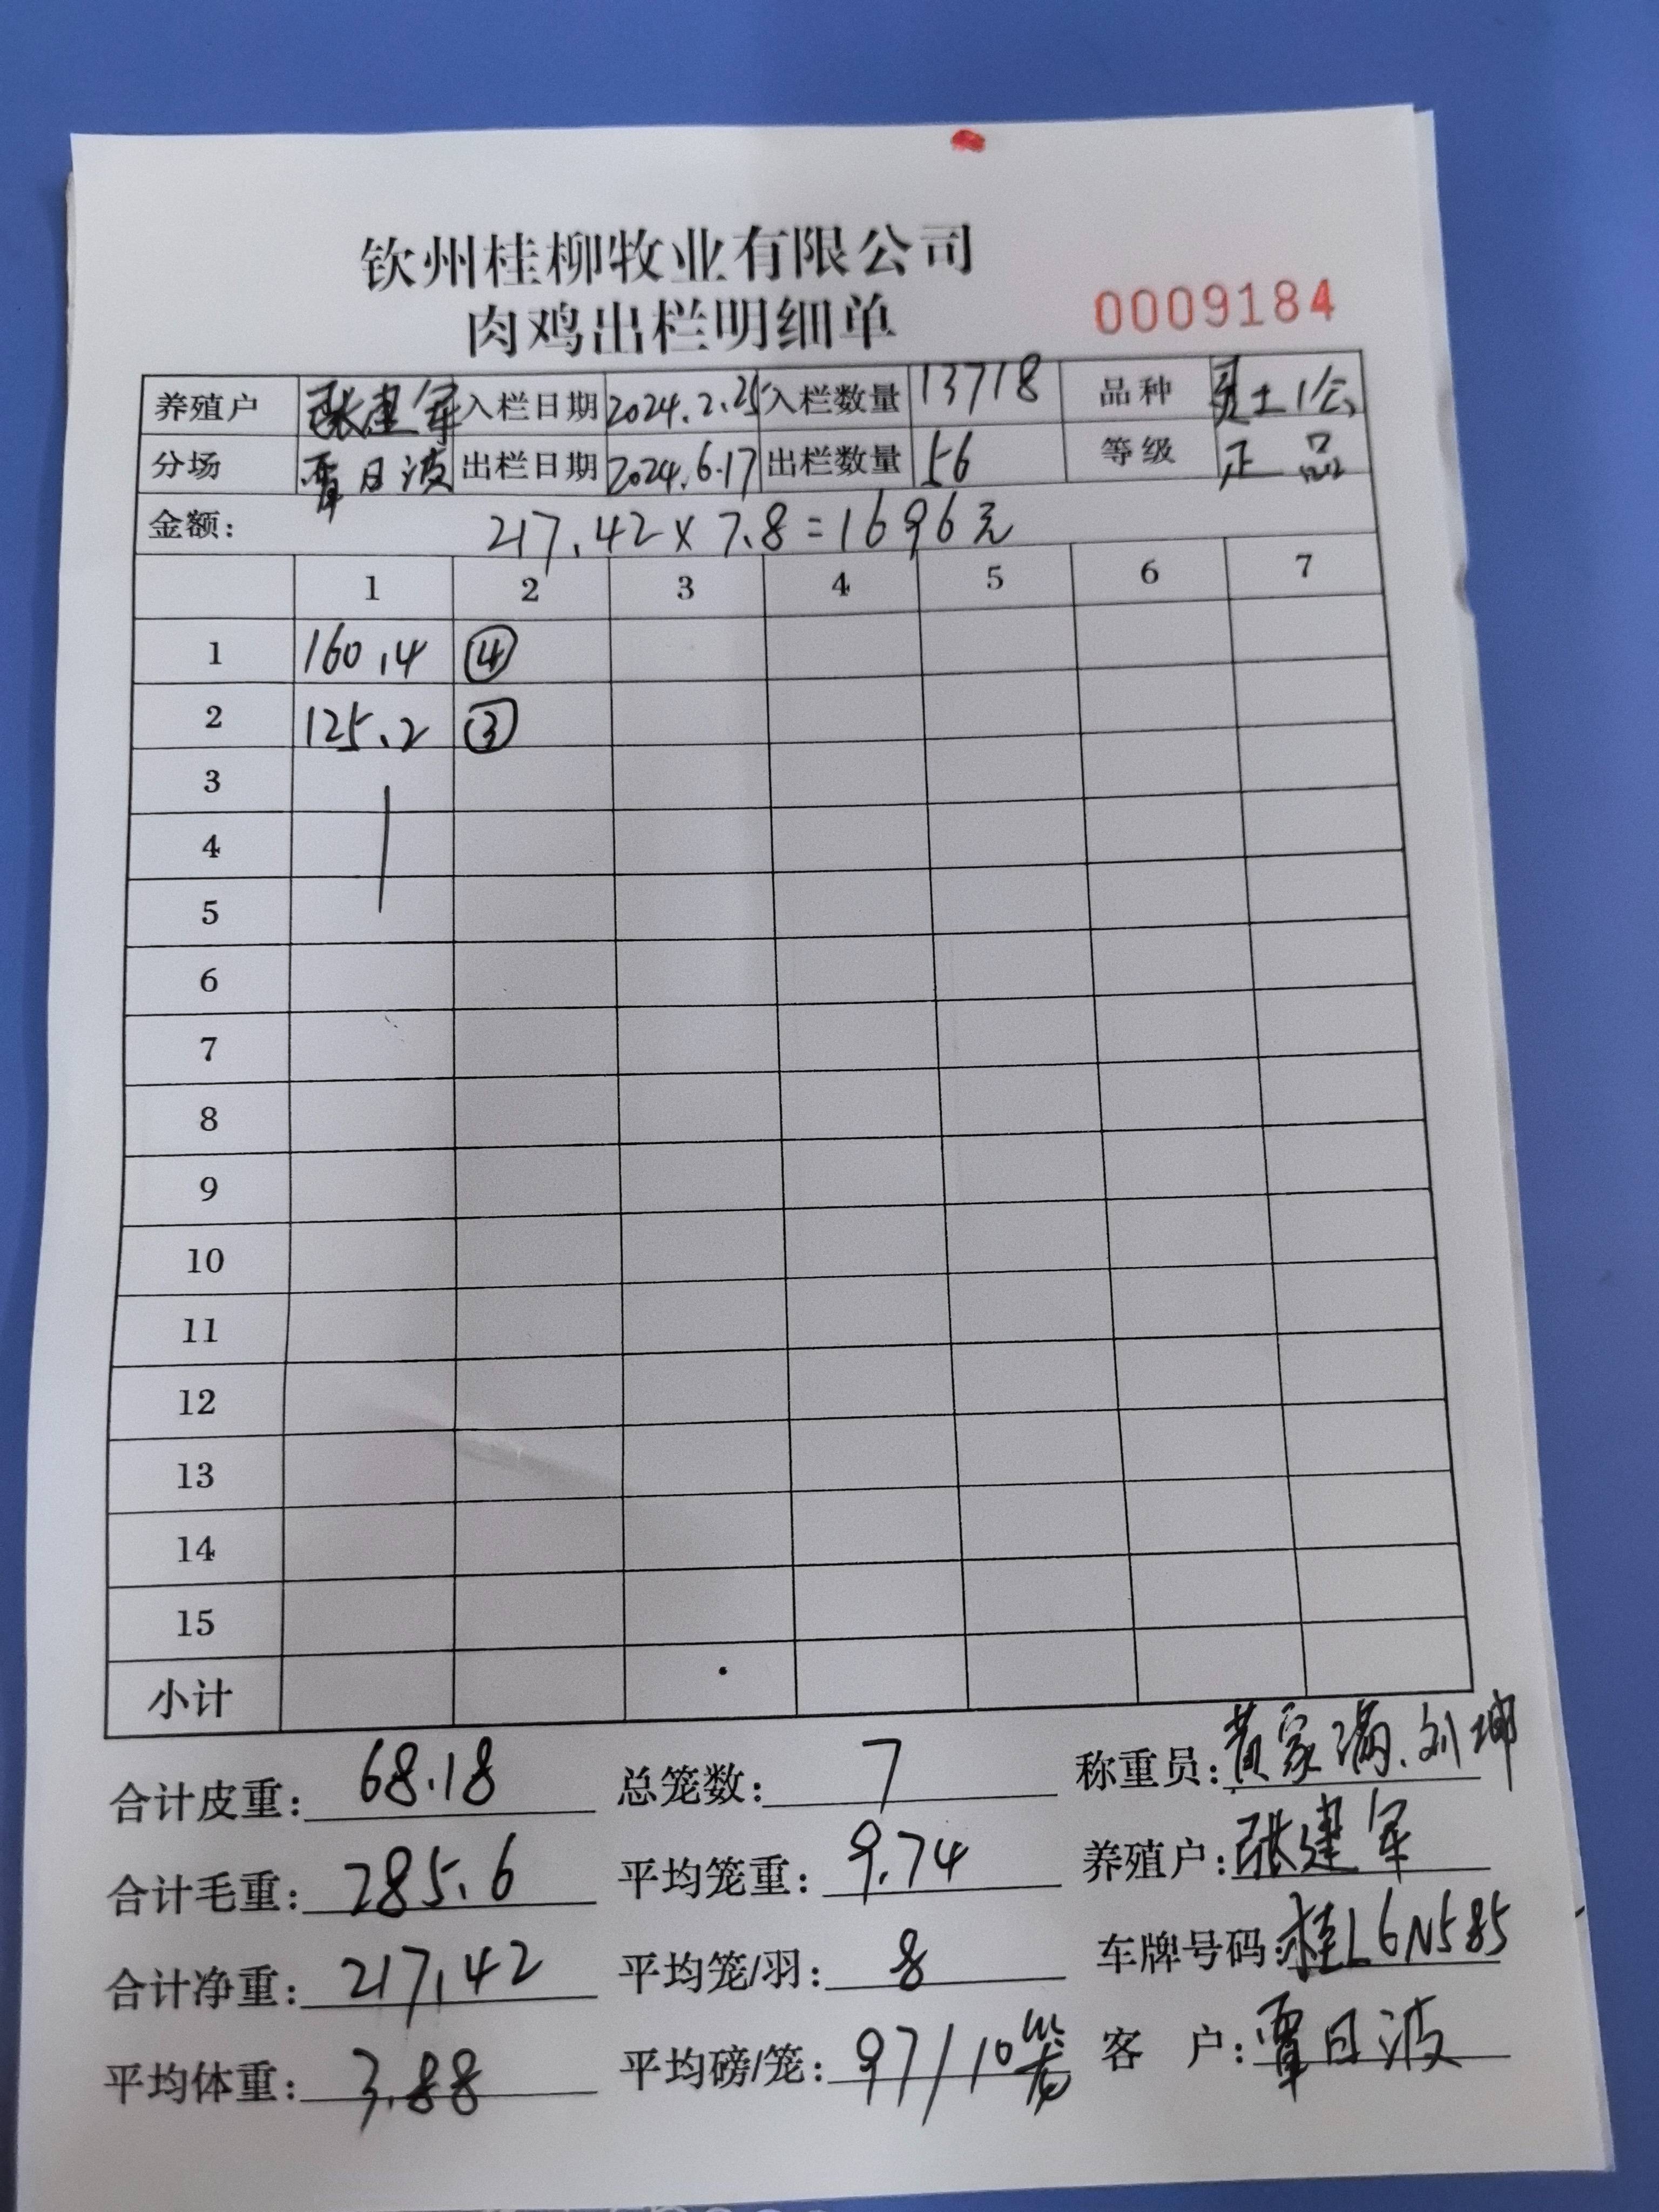 钦州桂柳牧业有限公司
肉鸡出栏明细单
0009184
养殖户 张建军 入栏日期 2024.2.25 入栏数量 13718 品种 土1公
分场 覃日波 出栏日期 2024.6.17 出栏数量 56 等级 正品
金额: 217.42×7.8=1696元
1 2 3 4 5 6 7
1 160.4 ④
2 125.2 ③
3
4
5
6
7
8
9
10
11
12
13
14
15
小计
合计皮重: 68.18 总笼数: 7 称重员: 黄家满.刘坤
合计毛重: 285.6 平均笼重: 9.74 养殖户: 张建军
合计净重: 217.42 平均笼/羽: 8 车牌号码: 桂L6N585
平均体重: 3.88 平均磅/笼: 97/10笼 客户: 覃日波